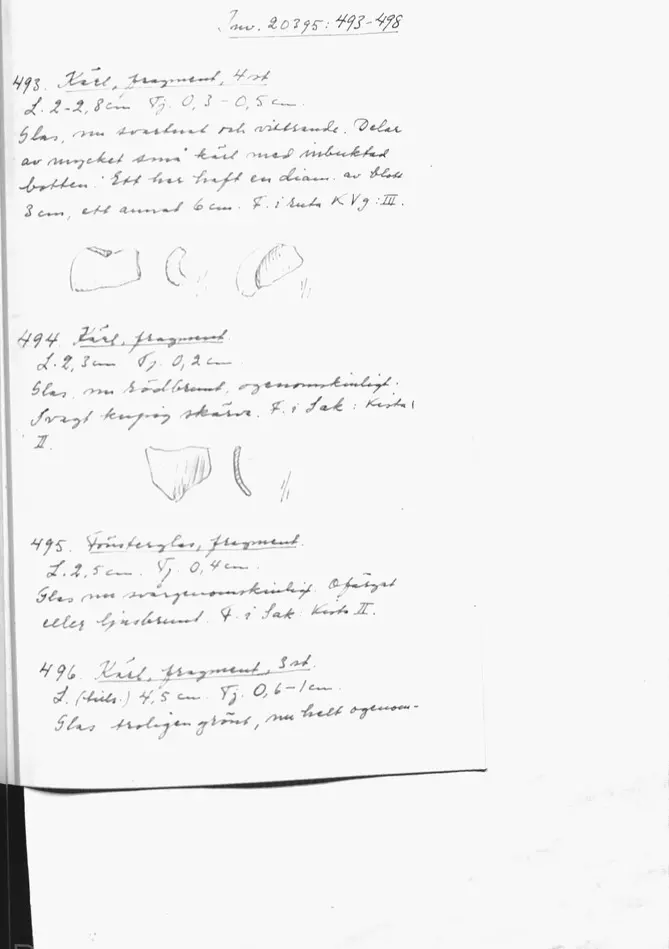 Inv. 20395: 493-498
493. Kärl, fragment, 4 st
L. 2-2,8 cm Tj. 0,3 - 0,5 cm.
Glas, nu svartbrunt och vittrande. Delar
av mycket små kärl med inbuktad
botten. Ett har haft en diam. av blott
3 cm, ett annat 6 cm. F. i ruta K V g: III.
1/1
1/1
494. Kärl, fragment
L. 2,3 cm Tj. 0,2 cm
Glas, nu rödbrunt, ogenomskinligt.
Svagt kupig skärva. F. i Sak: Kista
II.
1/1
495. Fönsterglas, fragment.
L. 2,5 cm. Tj. 0,4 cm.
Glas nu svårgenomskinligt. Ofärgat
eller ljusbrunt. F. i Sak: Kista II.
496. Kärl, fragment, 3 st.
L. (tills.) 4,5 cm. Tj. 0,6-1 cm.
Glas troligen grönt, nu helt ogenom-